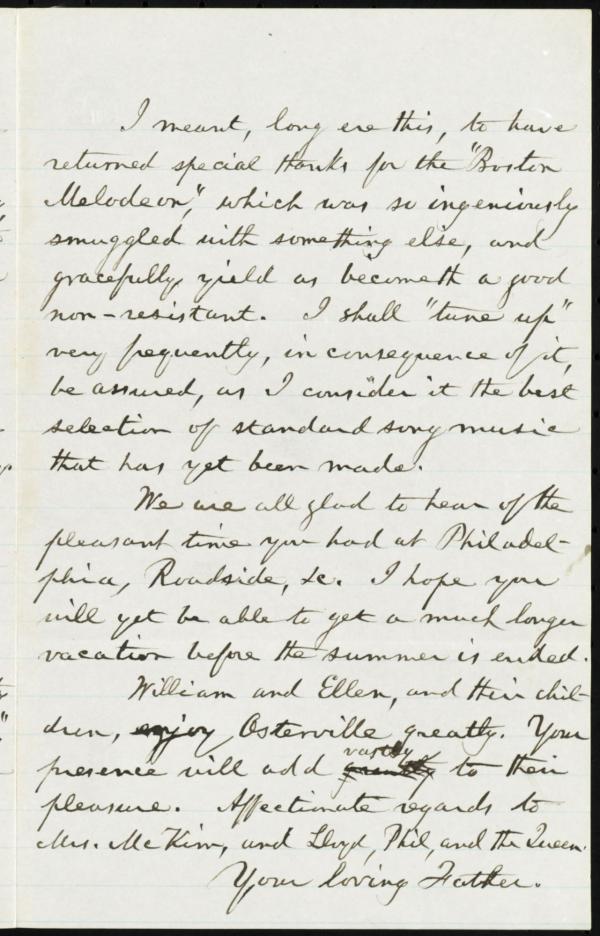 I meant, long ere this, to have
returned special thanks for the "Boston
Melodeon," which was so ingeniously
smuggled with something else, and
gracefully yield as becometh a good
non-resistant. I shall "tune up"
very frequently, in consequence of it,
be assured, as I consider it the best
selection of standard song music
that has yet been made.
We are all glad to hear of the
pleasant time you had at Philadel-
phia, Roadside, &c. I hope you
will yet be able to get a much longer
vacation before the summer is ended.
William and Ellen, and their chil-
dren, enjoy Osterville greatly. Your
presence will add vastly to their
pleasure. Affectionate regards to
Mrs. McKim, and Lloyd, Phil, and the Queen.
Your loving Father.